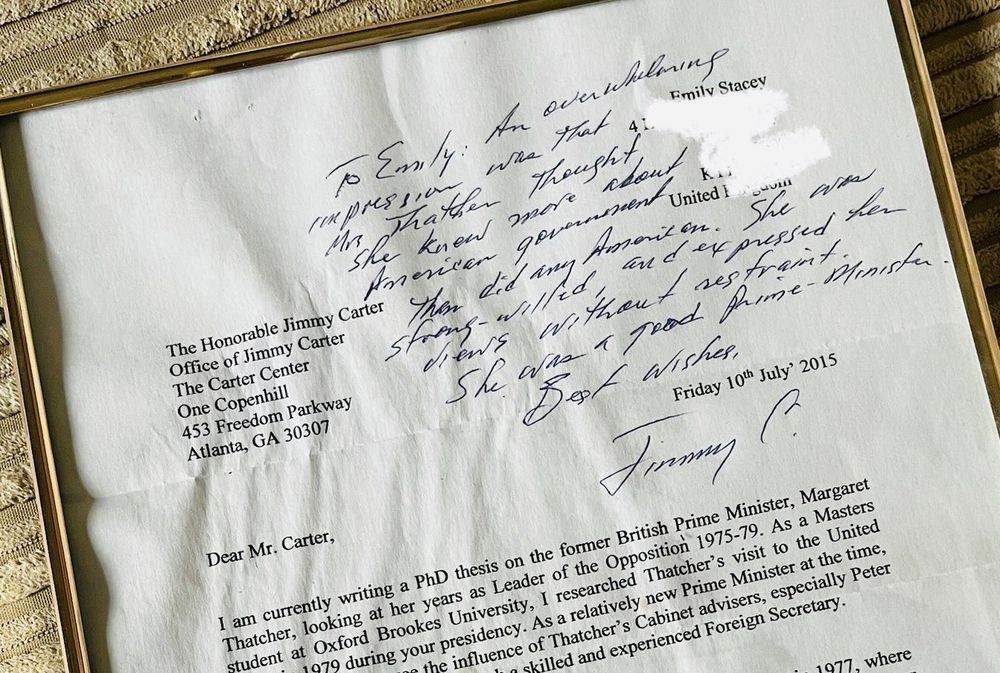 Emily Stacey
4
K
United Kingdom
To Emily: An overwhelming
impression was that
Mrs Thatcher thought
she knew more about
American government
than did any American. She was
strong-willed, and expressed her
views without restraint.
She was a good Prime-Minister.
Best wishes,
Jimmy C.
The Honorable Jimmy Carter
Office of Jimmy Carter
The Carter Center
One Copenhill
453 Freedom Parkway
Atlanta, GA 30307
Friday 10th July' 2015
Dear Mr. Carter,
I am currently writing a PhD thesis on the former British Prime Minister, Margaret
Thatcher, looking at her years as Leader of the Opposition 1975-79. As a Masters
student at Oxford Brookes University, I researched Thatcher's visit to the United
in 1979 during your presidency. As a relatively new Prime Minister at the time,
the influence of Thatcher's Cabinet advisers, especially Peter
a skilled and experienced Foreign Secretary.
in 1977, where